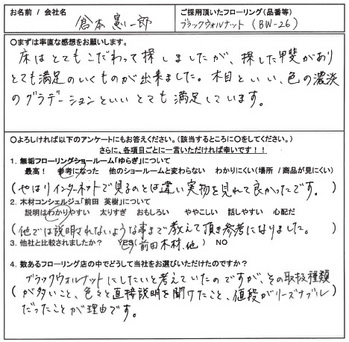 お名前 / 会社名
倉本憲一郎
ご採用頂いたフローリング(品番等)
ブラックウォルナット(BW-26)
○まずは率直な感想をお願いします。
床はとてもこだわって探しましたが、探した甲斐があり
とても満足のいくものが出来ました。木目といい、色の濃淡
のグラデーションといいとても満足しています。
○よろしければ以下のアンケートにもお答えください。(該当するところに○をしてください。)
さらに、各項目ごとに一言いただければ幸いです!!
1. 無垢フローリングショールーム「ゆらぎ」について
最高! 参考になった 他のショールームと変わらない わかりにくい(場所 / 商品が見にくい)
(やはりインターネットで見るのとは違い実物を見れて良かったです。)
2. 木材コンシェルジュ「前田 英樹」について
説明はわかりやすい 太りすぎ おもしろい ややこしい 話しやすい 心配だ
(他では説明されないような事まで教えて頂き参考になりました。)
3. 他社と比較されましたか? YES(前田木材、他) NO
4. 数あるフローリング店の中でどうして当社をお選びいただけたのですか?
(ブラックウォルナットにしたいと考えていたのですが、その取扱種類
が多いこと、色々と直接説明を聞けたこと、値段がリーズナブル
だったことが理由です。)